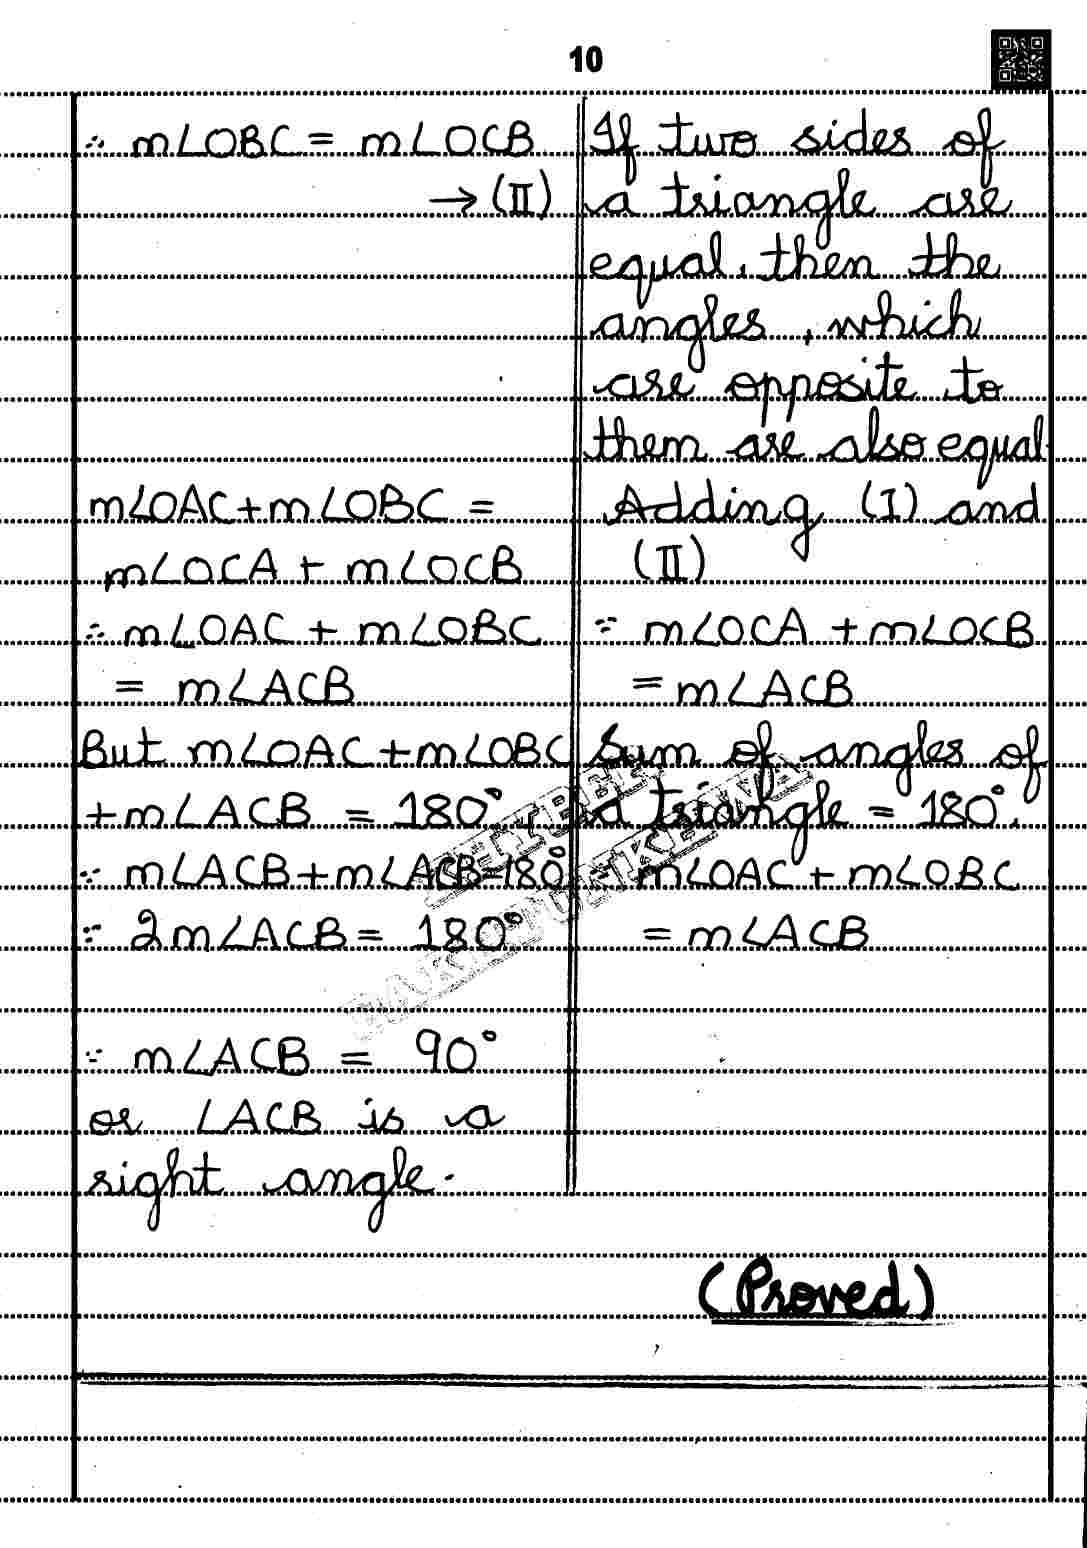 10
∴ m∠OBC = m∠OCB
→ (II)
If two sides of
a triangle are
equal, then the
angles, which
are opposite to
them are also equal.
m∠OAC + m∠OBC =
m∠OCA + m∠OCB
Adding (I) and
(II)
∴ m∠OAC + m∠OBC
= m∠ACB
∵ m∠OCA + m∠OCB
= m∠ACB
But m∠OAC + m∠OBC
+ m∠ACB = 180°
Sum of angles of
a triangle = 180°.
∵ m∠ACB + m∠ACB = 180°
∵ 2m∠ACB = 180°
m∠OAC + m∠OBC
= m∠ACB
∵ m∠ACB = 90°
or ∠ACB is a
right angle.
(Proved)
KHYBER
PAKHTUNKHWA